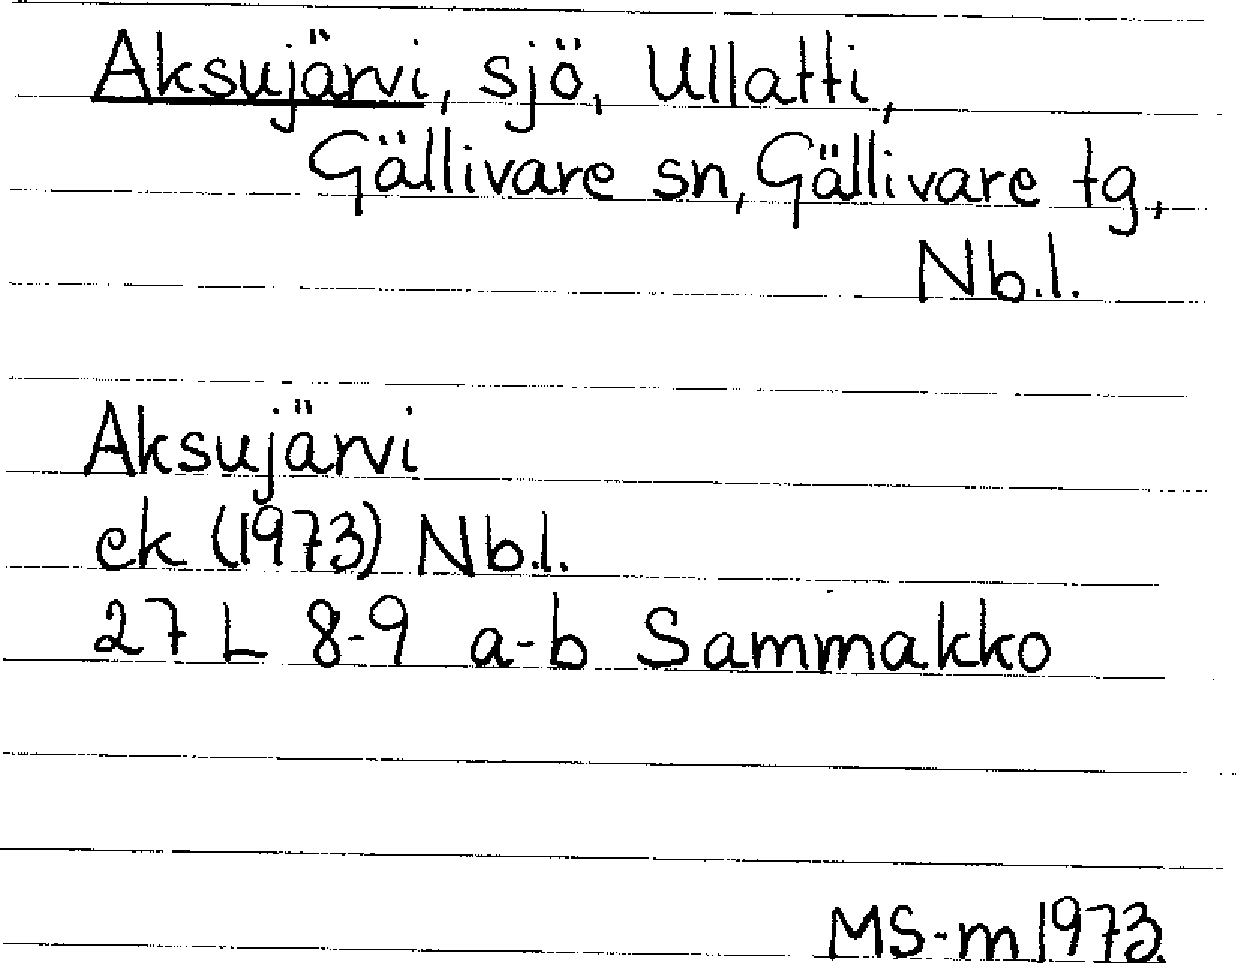 Aksujärvi, sjö, Ullatti,
Gällivare sn, Gällivare tg,
Nb.l.
Aksujärvi
ek (1973) Nb.l.
27 L 8-9 a-b Sammakko
MS-m 1973.